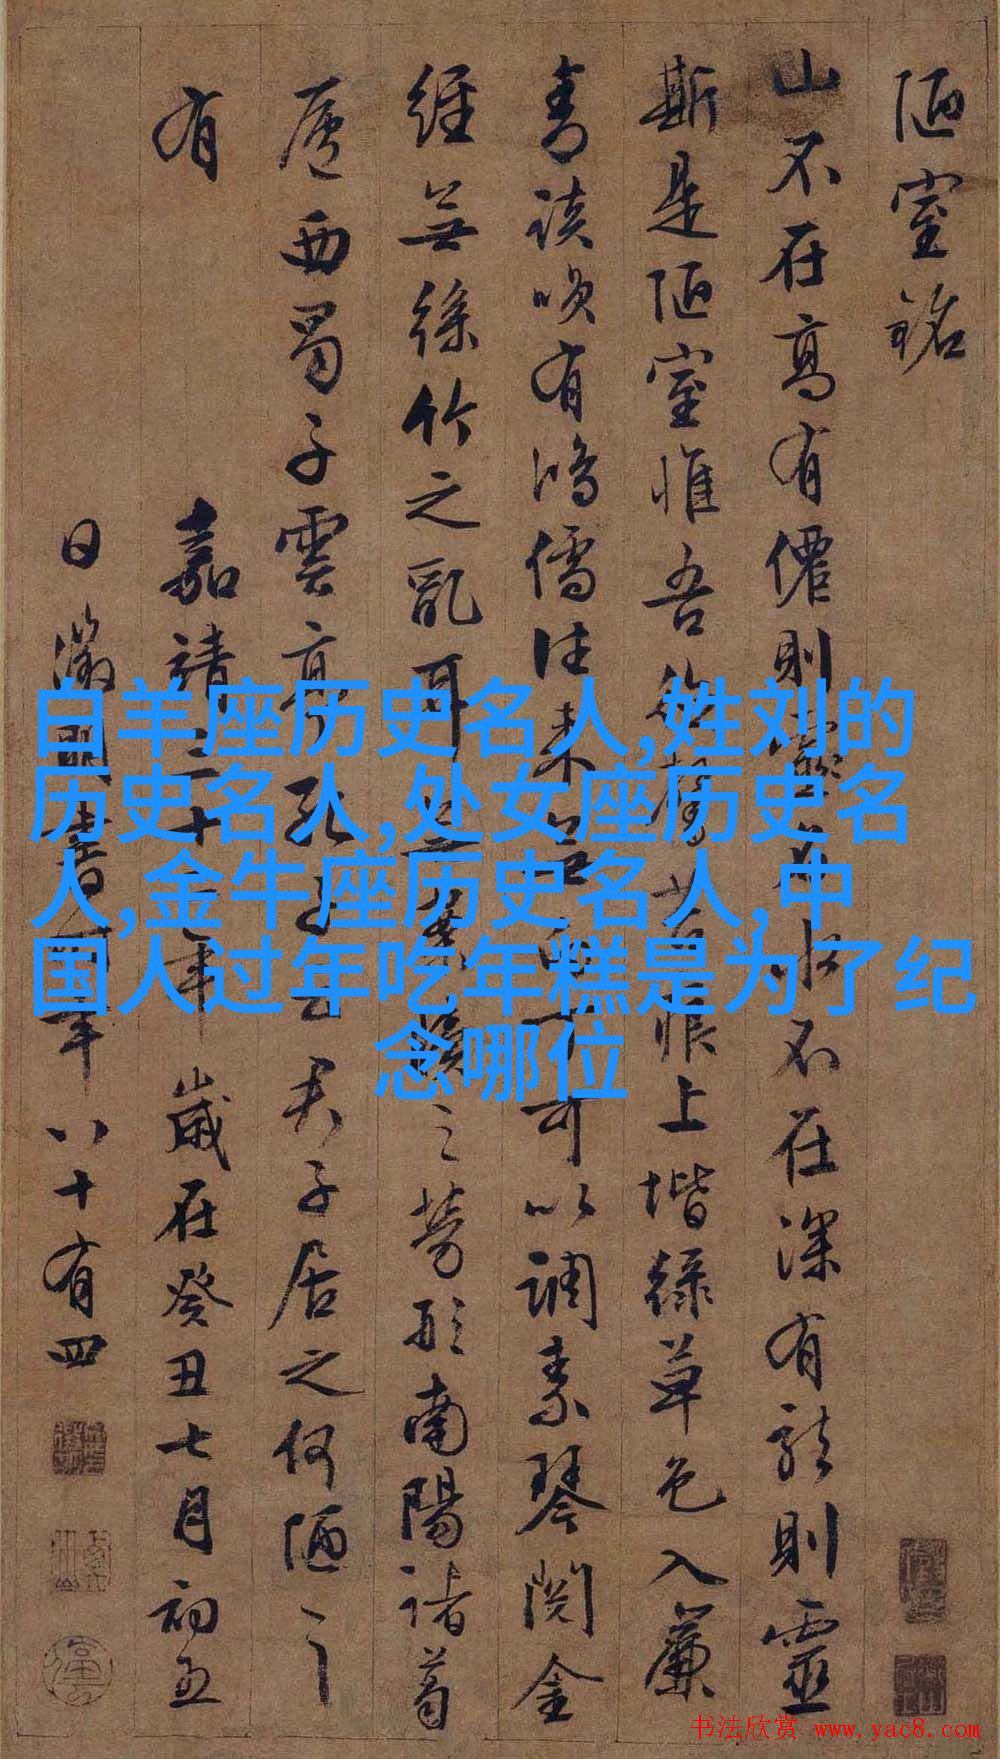 陋室銘
山不在高有僊則水不在深有龍則靈
斯是陋室惟吾德馨苔痕上堦緑草色入簾
青談唉有鴻儒往来可以調素琴閱金
經無絲竹之亂耳之勞形南陽諸葛
廬西蜀子雲亭孔子云君子居之何陋之
有
嘉靖三十二年歲在癸丑七月初五
日徵明書時年八十有四
白羊座历史名人,姓刘的
历史名人,处女座历史名
人,金牛座历史名人,中
国人过年吃年糕是为了纪
念哪位
书法欣赏 www.yac8.com